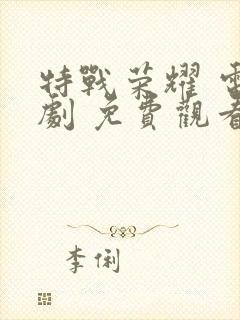 特戰榮耀 電
劇 免費觀看
李俐